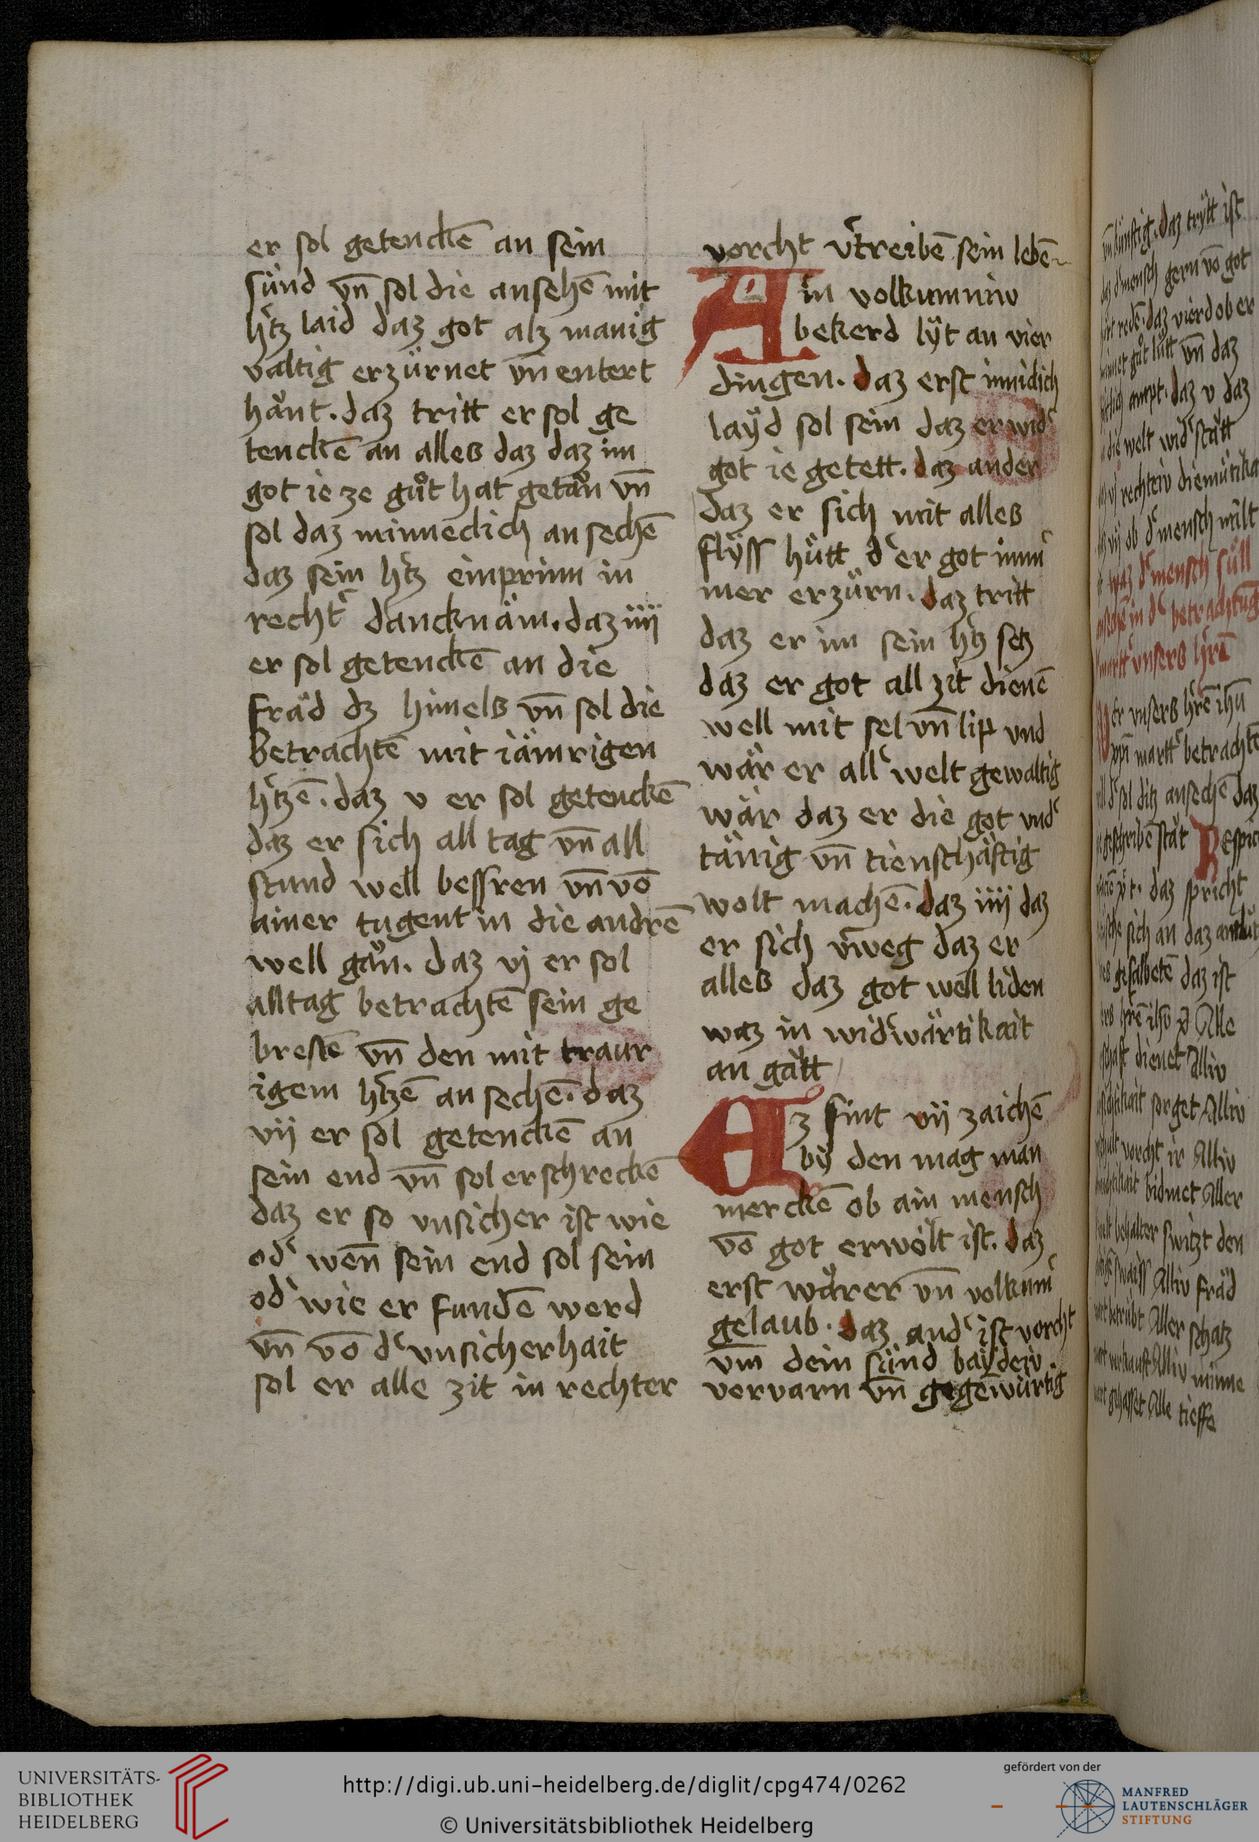 er sol getenckē an sein
sünd vn̄ sol die ansehē mit
htz laid daz got alz manig
valtig erzürnet vn̄ entert
hånt. daz tritt er sol ge
tenckē an alles daz daz im
got ie ze gůt hat getån vn̄
sol daz minneclich an sechē
daz sein htz einprinn in
recht' dancknäm. daz iiij
er sol getenckē an die
fråd dz himels vn̄ sol die
betrachtē mit iämrigen
htzē. daz v er sol getenckē
daz er sich all tag vn̄ all
stund well bessren vn̄ vō
ainer tugent in die andrē
well gån. daz vj er sol
alltag betrachtē sein ge
brestē vn̄ den mit traur
igem htzē an sechē. daz
vij er sol getenckē an
sein end vn̄ sol erschreckē
daz er so vnsicher ist wie
od' wen̄ sein end sol sein
od' wie er fundē werd
vn̄ vō d' vnsicherhait
sol er alle zit in rechter
vorcht v'treibē sein lebē
Ain volkumniv
bekerd lÿt an vier
dingen. daz erst innidich
laÿd sol sein daz er wid'
got ie getett. daz ander
daz er sich mit alles
flÿss hütt d' er got imm'
mer erzürn. daz tritt
daz er im sein htz setz
daz er got all zit dienē
well mit sel vn̄ lip vnd
wär er all' welt gewaltig
wär daz er die got vnd'
tänig vn̄ tienschäftig
wolt machē. daz iiij daz
er sich v'weg daz er
alles daz got well liden
waz in wid'wärtikait
an gätt
Ez sint vij zaichē
bÿ den mag man
merckē ob ain mensch
vō got erwölt ist. daz
erst wårer vn̄ volkum'
gelaub. daz and' ist vorcht
vm̄ dein sünd baÿdeiv
vervarn vn̄ gegēwürtig
daz trÿtt ist
mensch gern vō got
daz vierd ob er
vn̄ daz
ampt. daz v daz
die welt wid'stätt
rechteiv diemütika
vij ob d' mensch milt
waz d' mensch süll
in d' betrachtūg
vnsers hr̄n
vnsers hr̄ē ihū
betrachtē
sol ditz ansechē daz
geschribē stät Respic
daz spricht
sich an daz antlüt
gesalbetē daz ist
Alle
dienet Alliv
sorget Alliv
vorcht ir Alliv
bidmet Aller
behalter switzt den
Alliv fräd
betrübt Aller schatz
Alliv minne
Alle tieffe
UNIVERSITÄTS-
BIBLIOTHEK
HEIDELBERG
http://digi.ub.uni-heidelberg.de/diglit/cpg474/0262
© Universitätsbibliothek Heidelberg
gefördert von der
MANFRED
LAUTENSCHLÄGER
STIFTUNG